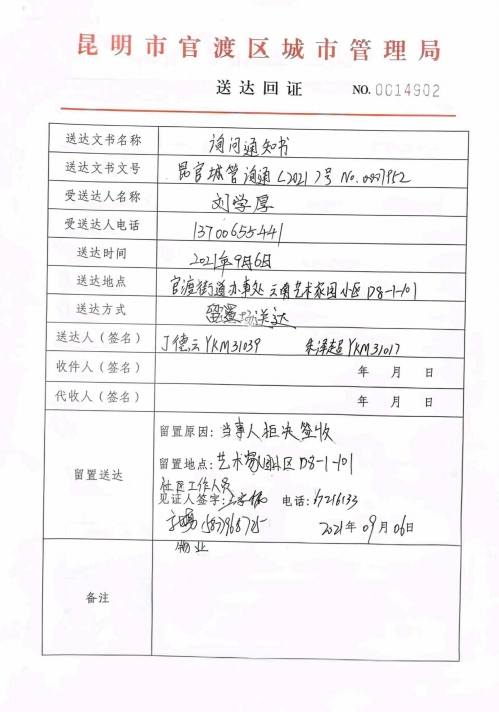 昆明市官渡区城市管理局
送达回证 NO.0014902
送达文书名称 询问通知书
送达文书文号 昆官城管询通〔2021〕号 No.0007952
受送达人名称 刘学厚
受送达人电话 13700655441
送达时间 2021年9月6日
送达地点 官渡街道办事处 云南艺术家园小区 D8-1-101
送达方式 留置送达
送达人（签名） 丁德云YKM31039 朱泽超YKM31017
收件人（签名） 年 月 日
代收人（签名） 年 月 日
留置送达
留置原因：当事人拒决签收
留置地点：艺术家园小区D8-1-101
社区工作人员
见证人签字： 电话：67216133
2021年09月06日
物业
备注